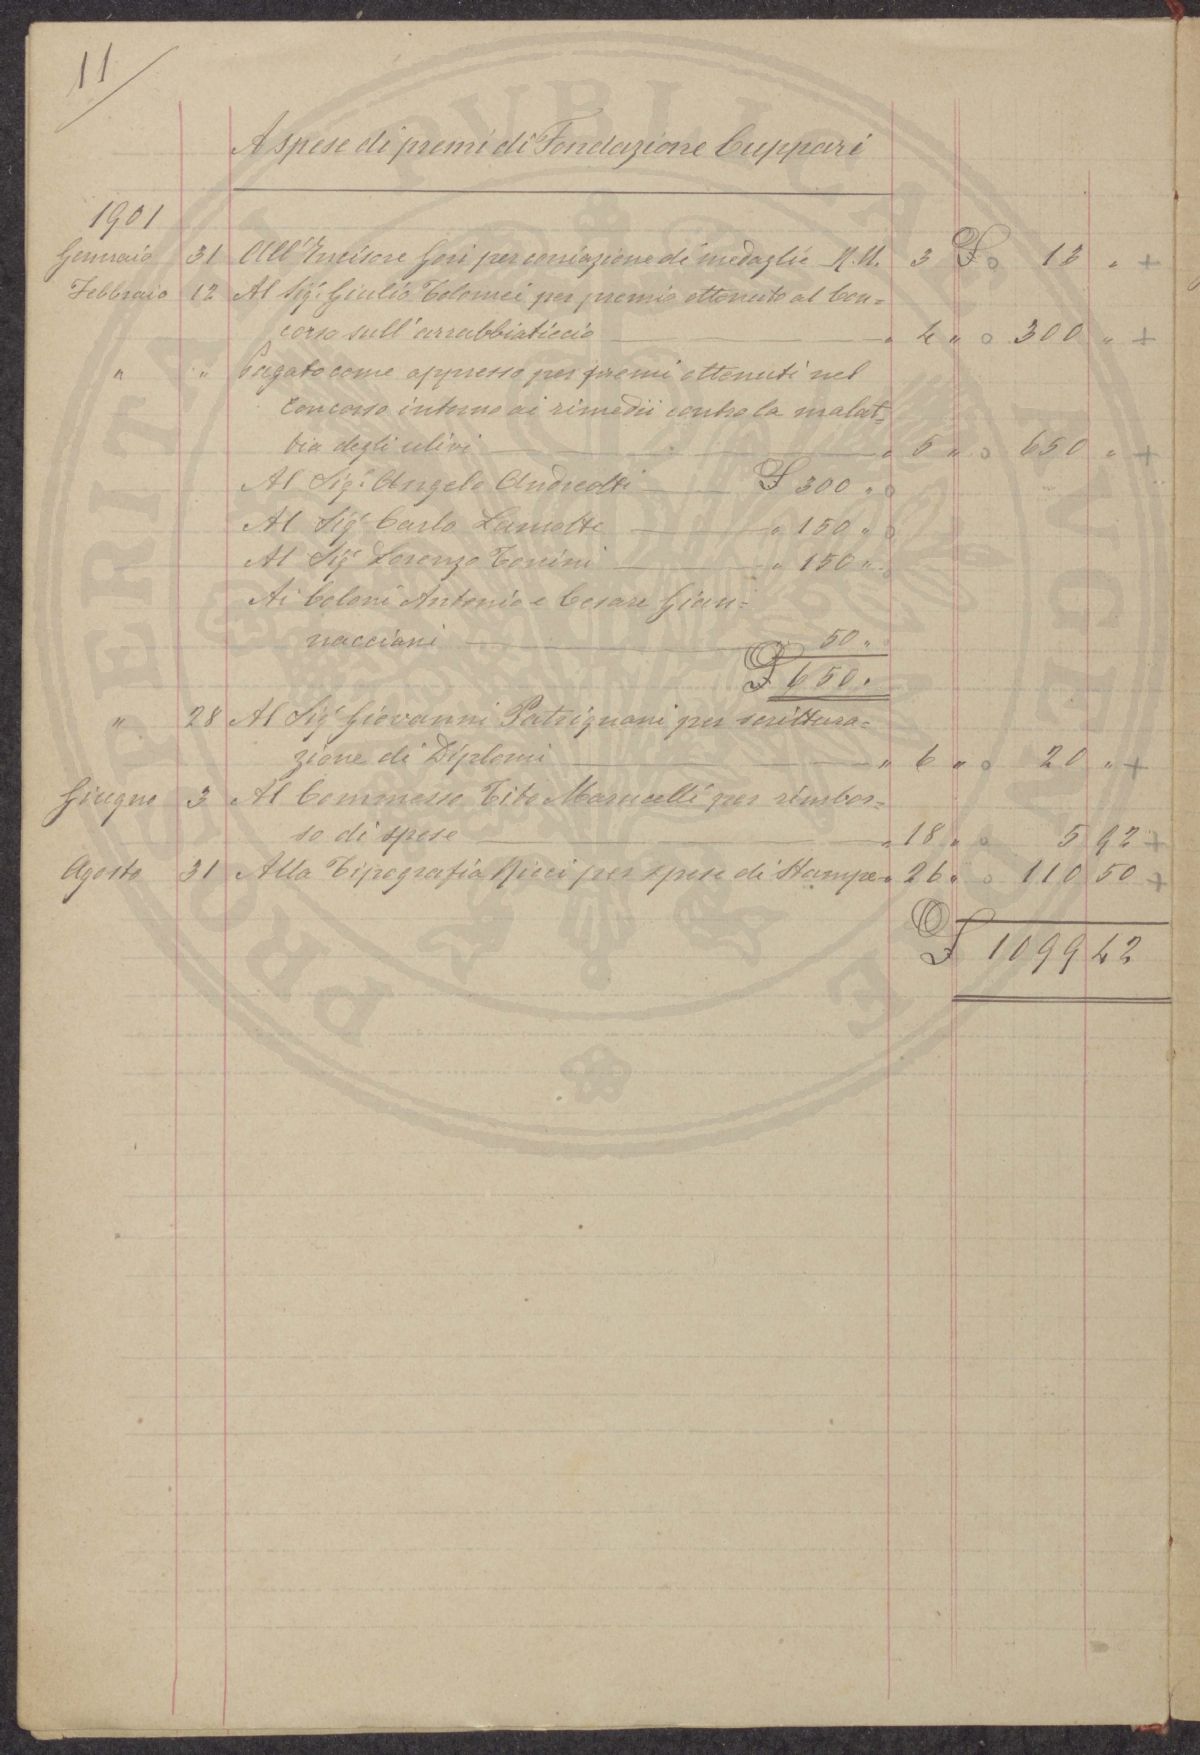 11
A spese di premi di Fondazione Cuppari
1901
Gennaio 31 All'Incisore Gori per coniazione di medaglie N.M. 3 £ 13 " +
Febbraio 12 Al Sig.r Giulio Tolomei per premio ottenuto al Con=
corso sull'arrabbiaticcio " 4 " 300 " +
" " Pagato come appresso per premi ottenuti nel
Concorso intorno ai rimedii contro la malat=
tia degli ulivi " 5 " 650 " +
Al Sig.r Angelo Andreotti £ 300 "
Al Sig.r Carlo Lamotte " 150 "
Al Sig.r Lorenzo Tonini " 150 "
Ai Coloni Antonio e Cesare Gian=
nacciani " 50 "
£ 650 "
" 28 Al Sig.r Giovanni Patrignani per scrittura=
zione di Diplomi " 6 " 20 " +
Giugno 3 Al Commesso Tito Marucelli per rimbor=
so di spese " 18 " 5 92 +
Agosto 31 Alla Tipografia Ricci per spese di Stampe " 26 " 110 50 +
£ 1099 42
PROSPERITATI PVBLICAE AVGENDAE